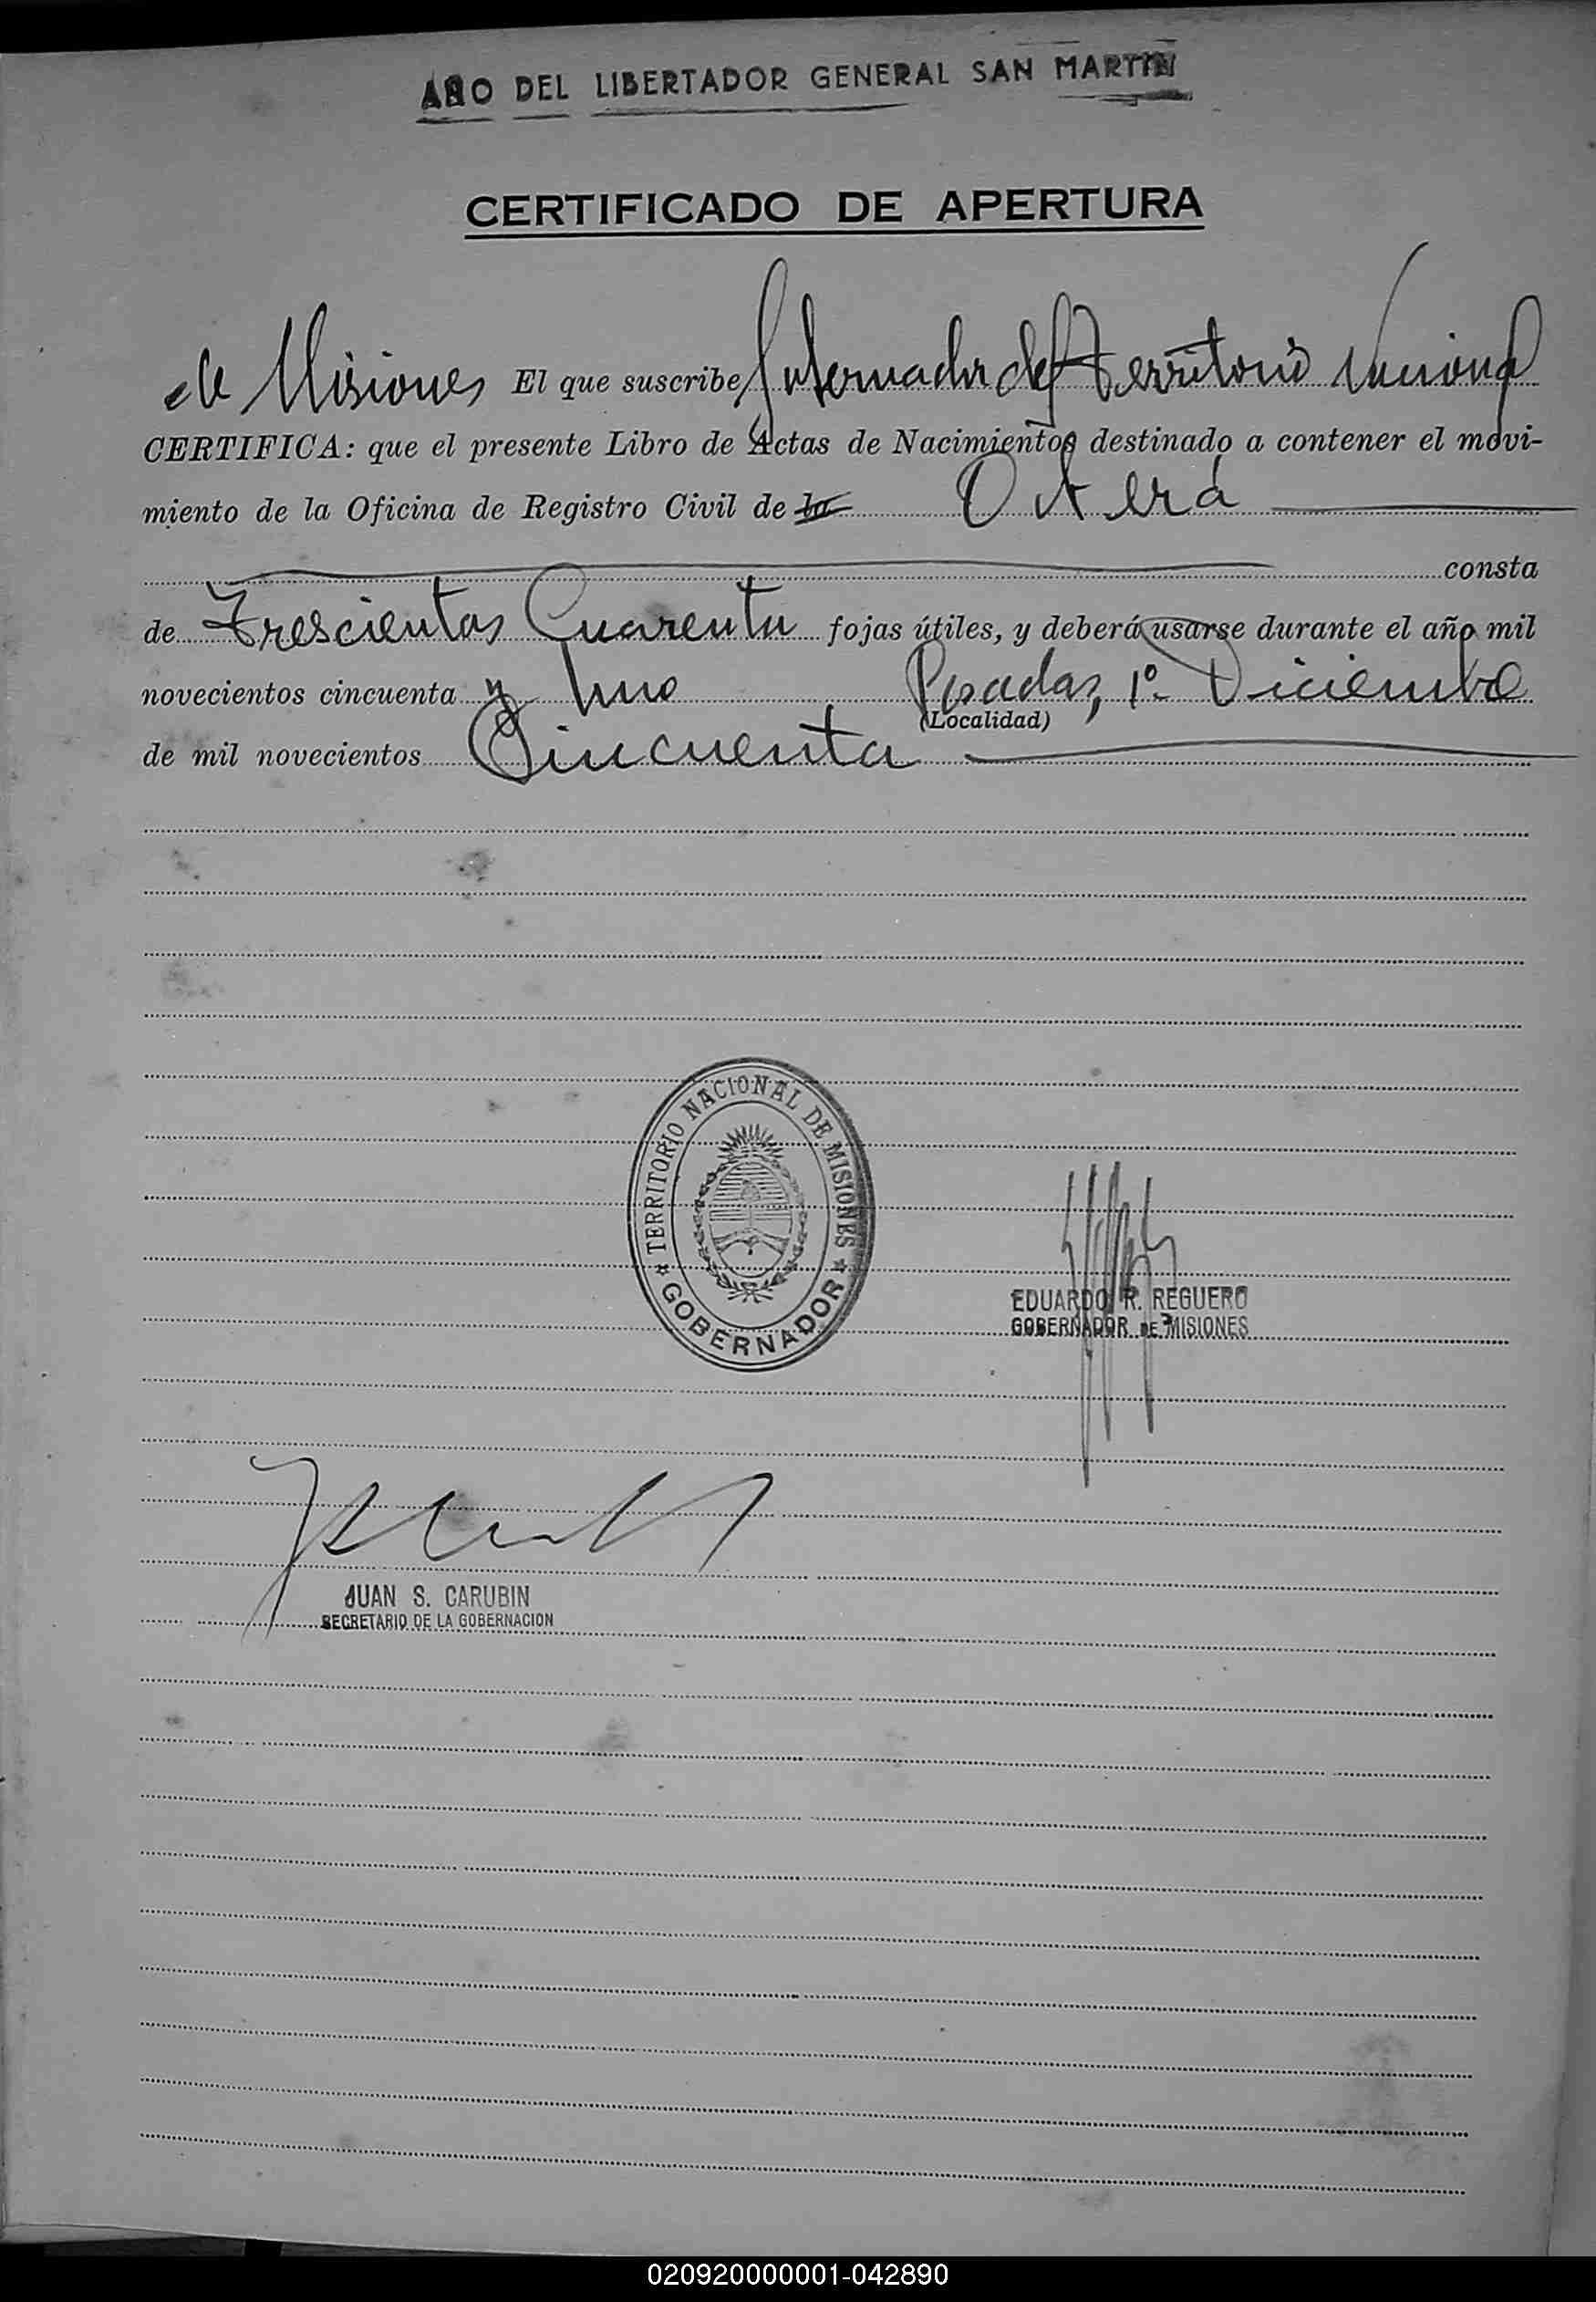 AÑO DEL LIBERTADOR GENERAL SAN MARTIN
CERTIFICADO DE APERTURA
de Misiones El que suscribe Gobernador del Territorio Nacional
CERTIFICA: que el presente Libro de Actas de Nacimientos destinado a contener el movi-
miento de la Oficina de Registro Civil de la Oberá
consta
de Trescientas Cuarenta fojas útiles, y deberá usarse durante el año mil
novecientos cincuenta y uno Posadas, 1º Diciembre
(Localidad)
de mil novecientos Cincuenta
TERRITORIO NACIONAL DE MISIONES
GOBERNADOR
EDUARDO R. REGUERO
GOBERNADOR DE MISIONES
JUAN S. CARUBIN
SECRETARIO DE LA GOBERNACION
020920000001-042890